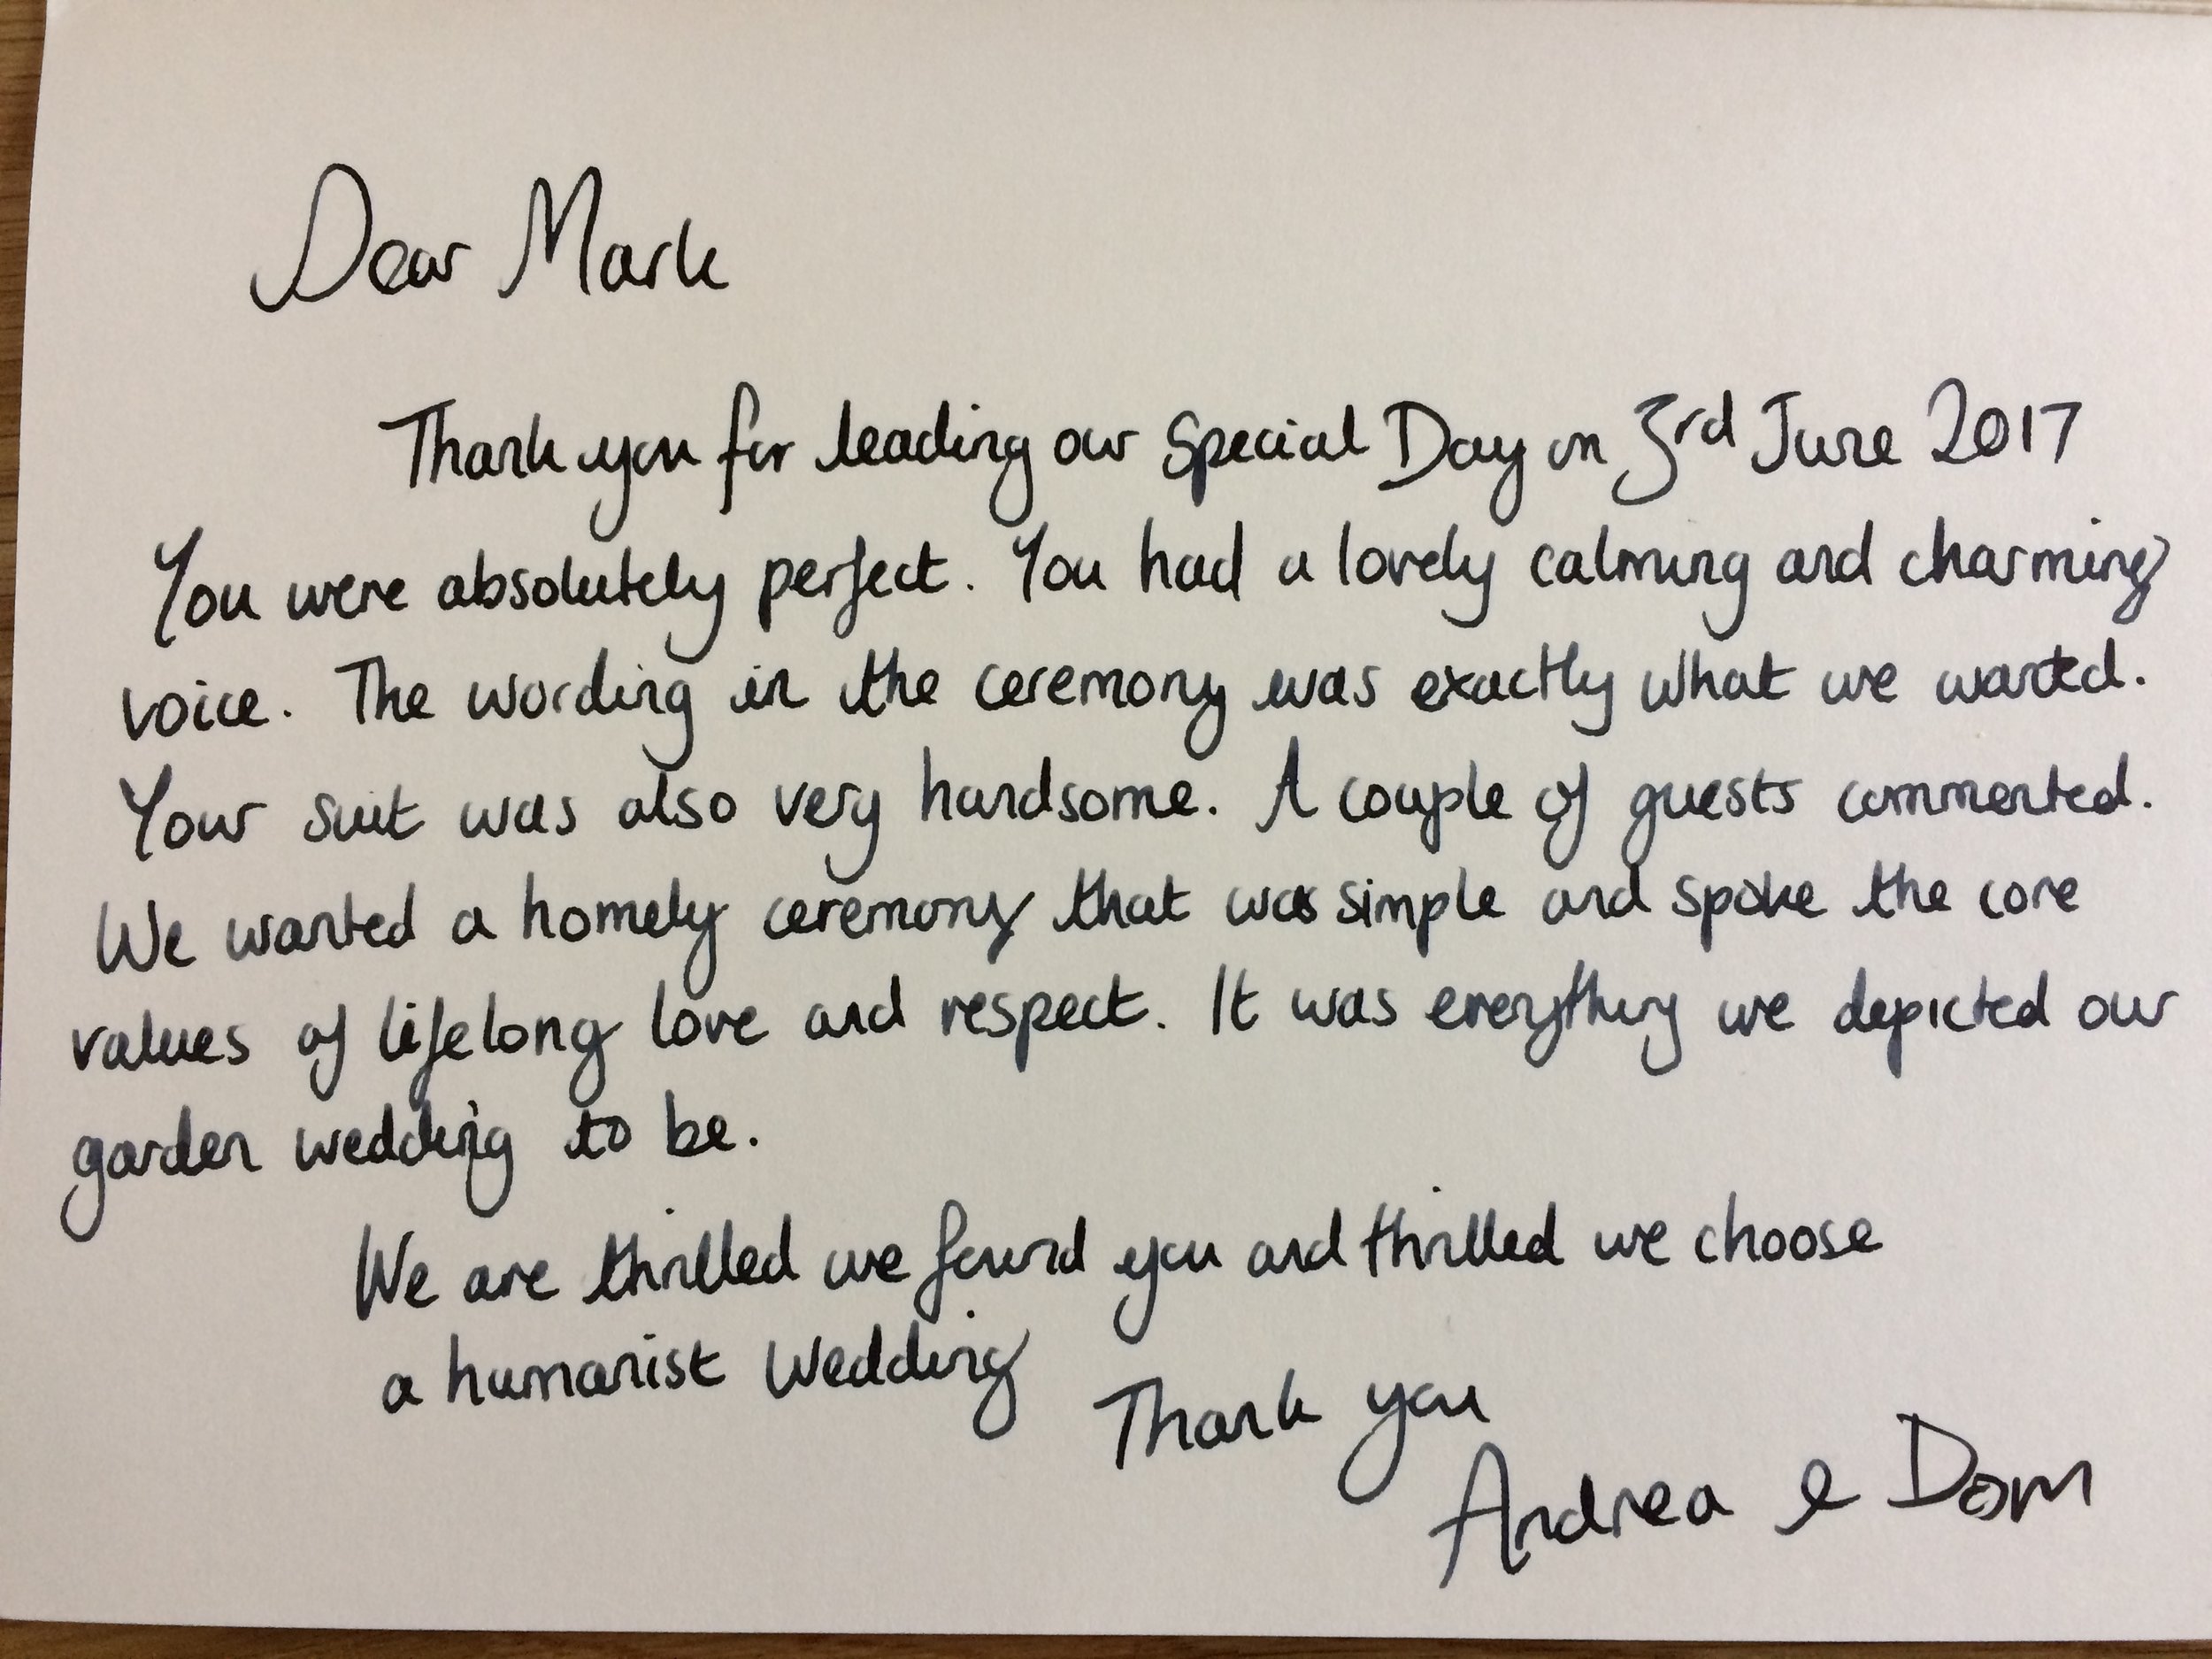 Dear Mark
Thank you for leading our Special Day on 3rd June 2017
You were absolutely perfect. You had a lovely calming and charming
voice. The wording in the ceremony was exactly what we wanted.
Your suit was also very handsome. A couple of guests commented.
We wanted a homely ceremony that was simple and spoke the core
values of lifelong love and respect. It was everything we depicted our
garden wedding to be.
We are thrilled we found you and thrilled we choose
a humanist Wedding
Thank you
Andrea & Dom